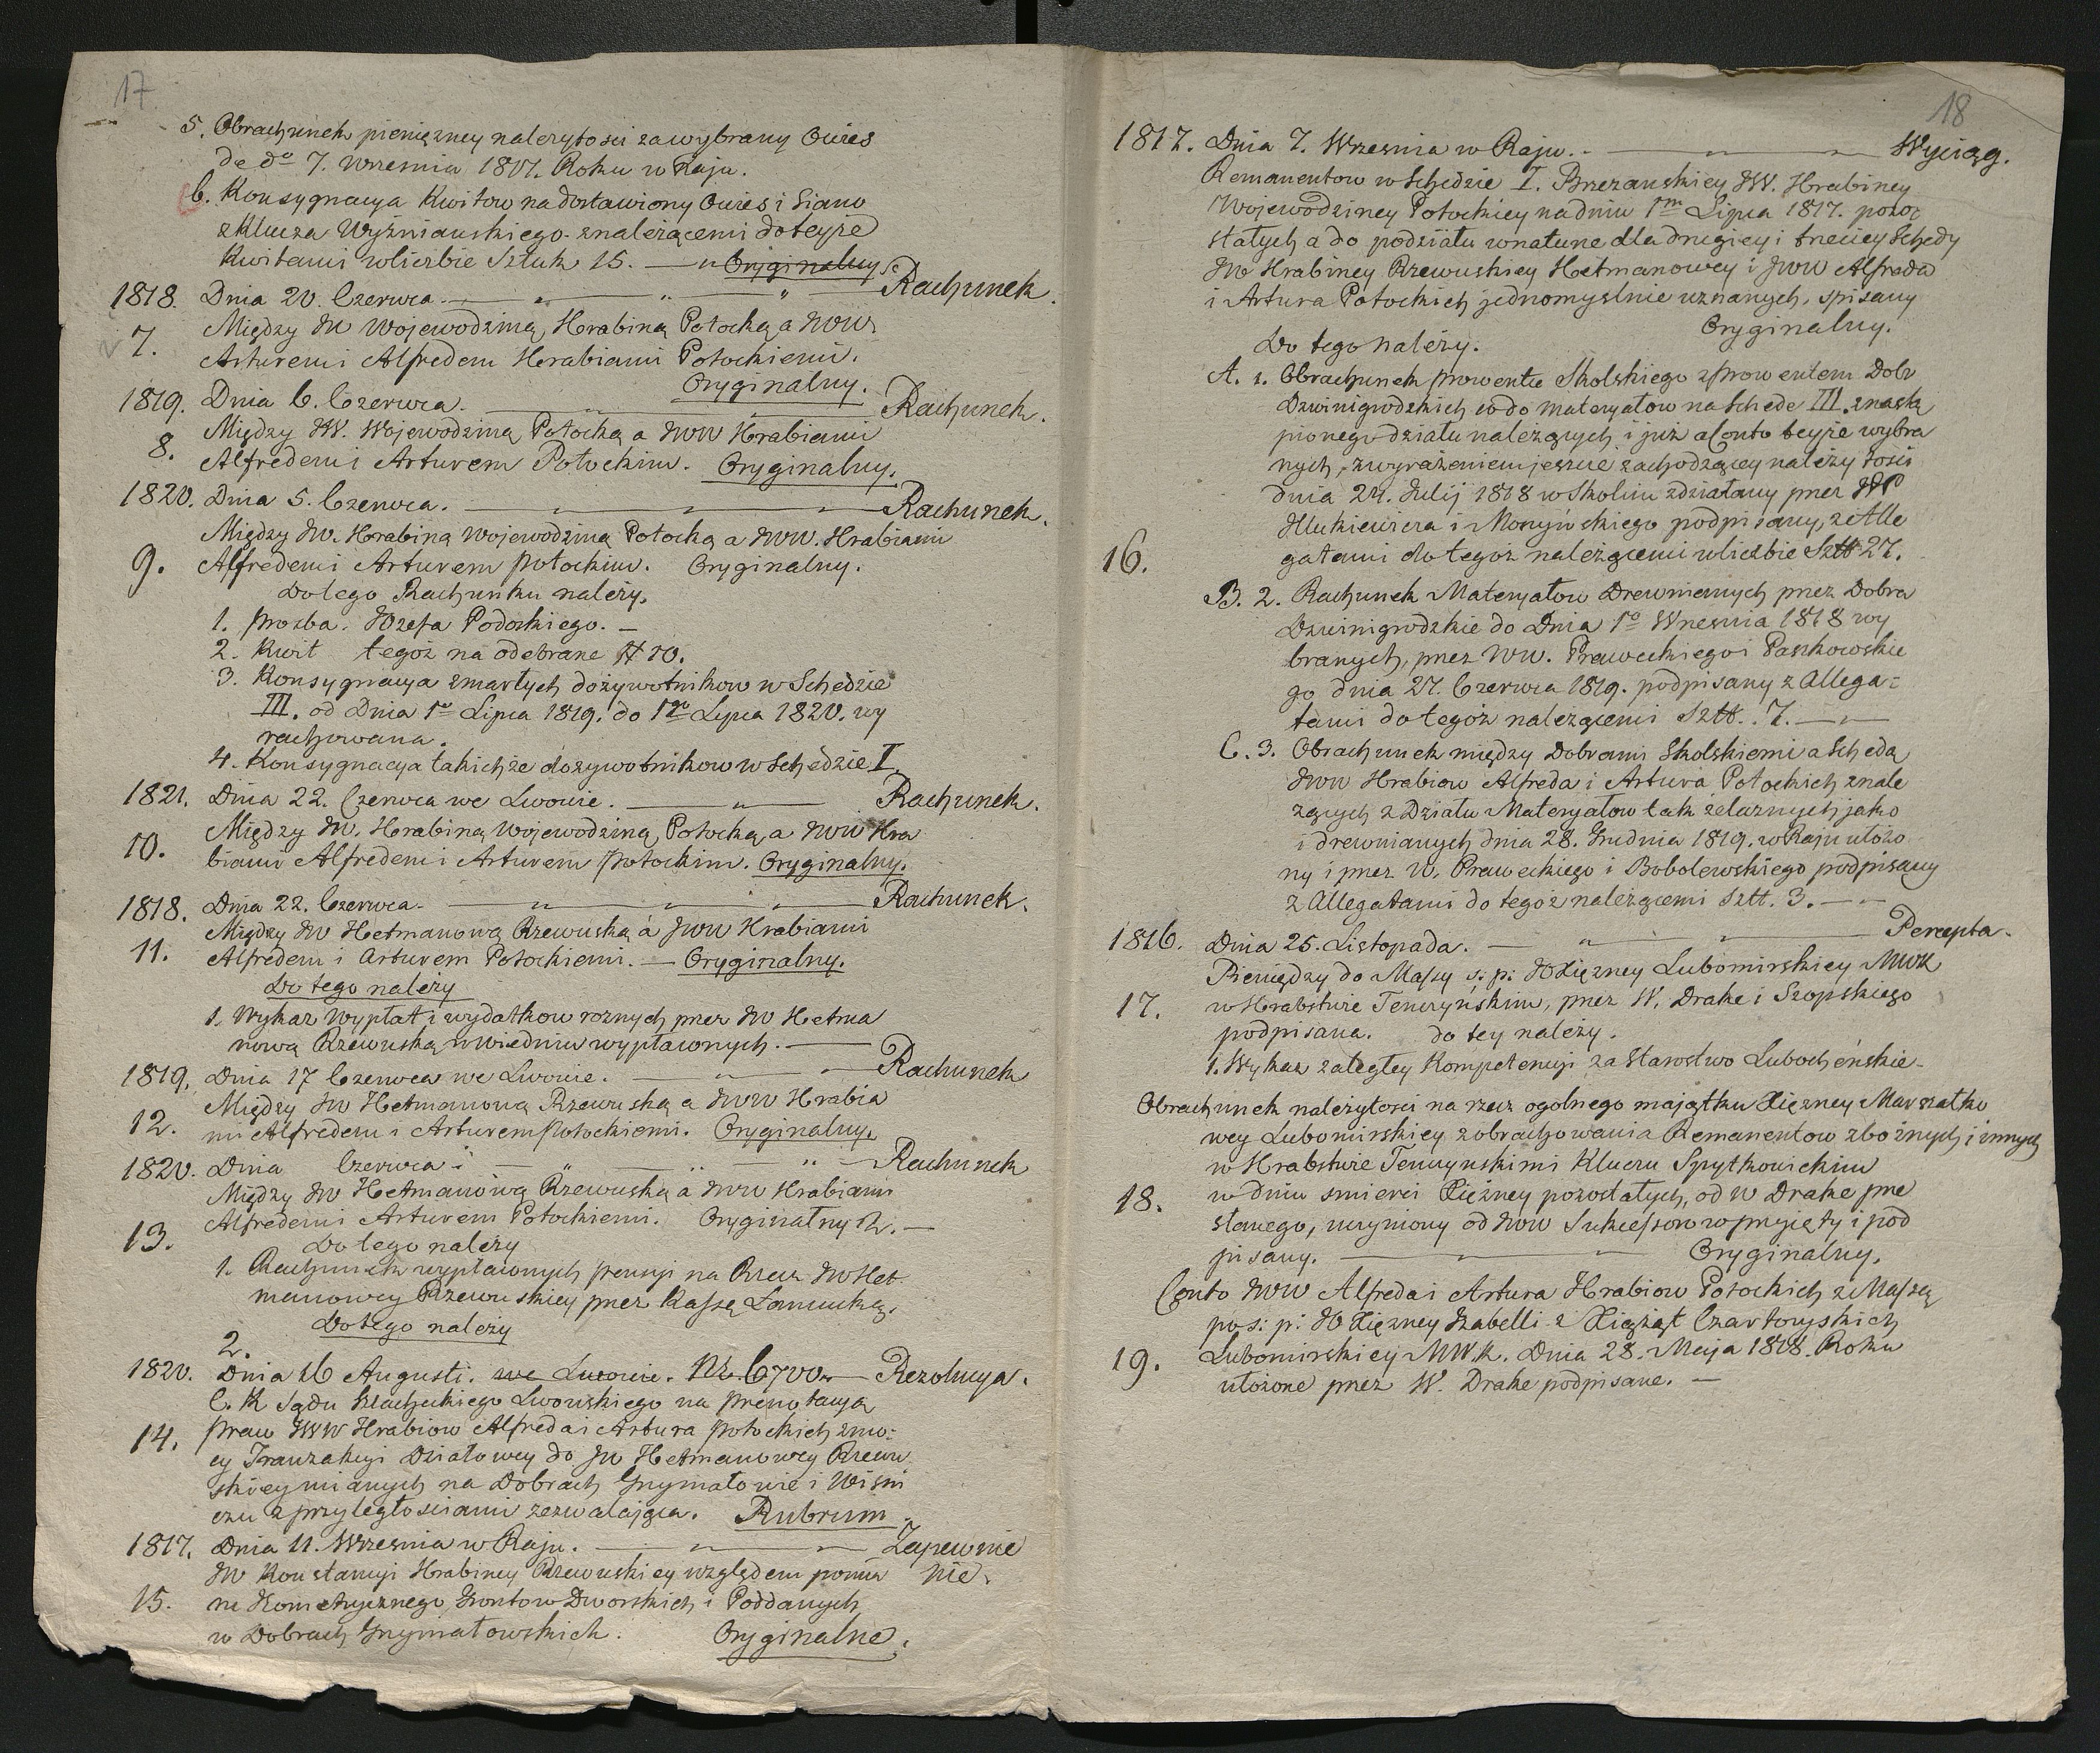 17
5. Obrachunek pienięzney nalezytosci za wybrany Owies
de do 7. Wrzesnia 1817. Roku w Raju.
6. Konsygnacya Kwitow na dostawiony Owies i Siano
z Klucza Wyżnianskiego z należącemi do teyże
Kwitami w liczbie Sztuk 15. — " Oryginalny
1818. Dnia 20. Czerwca. — " — " — " — Rachunek.
7. Między JW Wojewodziną Hrabiną Potocką a JWW.
Arturem i Alfredem Hrabiami Potockiemi.
Oryginalny.
1819. Dnia 6. Czerwca. — " — Rachunek.
Między JW. Wojewodziną Potocką a JWW Hrabiami
8. Alfredem i Arturem Potockim. Oryginalny.
1820. Dnia 5. Czerwca. — " — " — " — Rachunek.
Między JW. Hrabiną Wojewodziną Potocką a JWW. Hrabiami
9. Alfredem i Arturem Potockim. Oryginalny.
Do tego Rachunku należy.
1. Prozba. Józefa Podockiego. —
2. Kwit tegoż na odebrane # 10.
3. Konsygnacya zmarłych dożywotnikow w Schedzie
III. od Dnia 1o Lipca 1819. do 1go Lipca 1820. wy
rachowana.
4. Konsygnacya takichże dożywotnikow w Schedzie I.
1821. Dnia 22. Czerwca we Lwowie. — " — Rachunek.
Między JW. Hrabiną Wojewodziną Potocką, a JWW Hra
10. biami Alfredem i Arturem Potockim. Oryginalny.
1818. Dnia 22. Czerwca. — " — " — " — Rachunek.
Między JW Hetmanową Rzewuską á JWW Hrabiami
11. Alfredem i Arturem Potockiemi. — Oryginalny.
Do tego należy
1. Wykaz wypłat i wydatkow roznych przez JW Hetma
nową Rzewuską w wiedniu wypłaconych. —
1819. Dnia 17 Czerwca we Lwowie. — " — " — Rachunek
Między JW Hetmanową Rzewuską a JWW Hrabia
12. mi Alfredem i Arturem Potockiemi. Oryginalny.
1820. Dnia Czerwca. — " — " — " — Rachunek
Między JW Hetmanową Rzewuską á JWW Hrabiami
13. Alfredem i Arturem Potockiemi. Oryginalny 2. —
Do tego należy
1. Rachunek wypłaconych pensyi na Rzecz JW Het
manowey Rzewuskiey przez Kassę Łancucką.
Do tego należy
2.
1820. Dnia 16 Augusti. we Lwowie. Nr. 6700. — Rezolucya.
C. K Sądu Szlacheckiego Lwowskiego na prenotacyą
14. praw JWW Hrabiow Alfreda i Artura Potockich z mo:
cy Tranzakcyi Działowey do JW Hetmanowey Rzewu
skiey mianych na Dobrach Grzymałowie i Wiśni
czu z przyległosciami zezwalająca. Rubrum.
1817. Dnia 11. Wrzesnia w Raju. — " — " — Zapewnie
JW Konstancyi Hrabiney Rzewuskiey względem pomia nie.
15. ru Jeometrycznego Gruntow Dworskich i Poddanych
w Dobrach Grzymałowskich. Oryginalne.
18
1817. Dnia 7. Wrzesnia w Raju. — " — " — Wyciąg.
Remanentow w Schedzie I. Brzezanskiey JW. Hrabiney
Wojewodziney Potockiey na dniu 1m Lipca 1817. pozo
stałych a do podziału w naturze dla drugiey i trzeciey Schedy
JW Hrabiney Rzewuskiey Hetmanowey i JWW Alfreda
i Artura Potockich jednomyslnie uznanych, spisany
Oryginalny.
Do tego należy.
A. 1. Obrachunek prowentu Skolskiego z prowentem Dobr
Dzwinigrodzkich co do materyałow na Schede III. z nastą
pionego działu należących i już a Conto teyże wybra
nych, z wyrażeniem jeszcze zachodzącey należytosci
dnia 24. Julij 1818 w Skolim zdziałany przez WP
Ilukiewicza i Morzyńskiego podpisany, z Alle
16. gatami do tegoż należącemi w liczbie Sztt 27.
B. 2. Rachunek Materyałow Drewnianych przez Dobra
Dzwinigrodzkie do Dnia 1o Wrzesnia 1818 wy
branych, przez WW. Praweckiego i Paszkowskie
go dnia 27. Czerwca 1819. podpisany z Allega:
tami do tegoż należącemi Sztt. 7. — " —
C. 3. Obrachunek między Dobrami Skolskiemi a Schedą
JWW Hrabiow Alfreda i Artura Potockich z nale
zących z Działu Materyałow tak żelaznych jako
i drewnianych dnia 28. Grudnia 1819. w Raju ułożo
ny i przez W. Praweckiego i Bobolewskiego podpisany
z Allegatami do tegoż należącemi Sztt. 3. — " —
1816. Dnia 25. Listopada. — " — " — Percepta.
Pieniędzy do Massy s: p: JO Xiężney Lubomirskiey MWK
17. w Hrabstwie Tenczyńskim, przez W. Drake i Szopskiego
podpisana. do tey należy.
1. Wykaz zaległey Kompetencyi za Starostwo Lubocheńskie.
Obrachunek należytosci na rzecz ogolnego majątku Xiężney Marszałko
wey Lubomirskiey z obrachowania Remanentow zbożnych i innych
w Hrabstwie Tenczynskim i Kluczu Spytkowickim
18. w dniu smierci Xiężney pozostałych, od W Drake prze
słanego, uczyniony od JWW Sukcessorow przyięty i pod
pisany. — " — " — Oryginalny.
Conto JWW Alfreda i Artura Hrabiow Potockich z Massą
po s: p: JO Xiężney Izabelli z Xiążąt Czartoryskich
19. Lubomirskiey MW.K. Dnia 28. Maja 1818. Roku
ułożone przez W. Drake podpisane. —